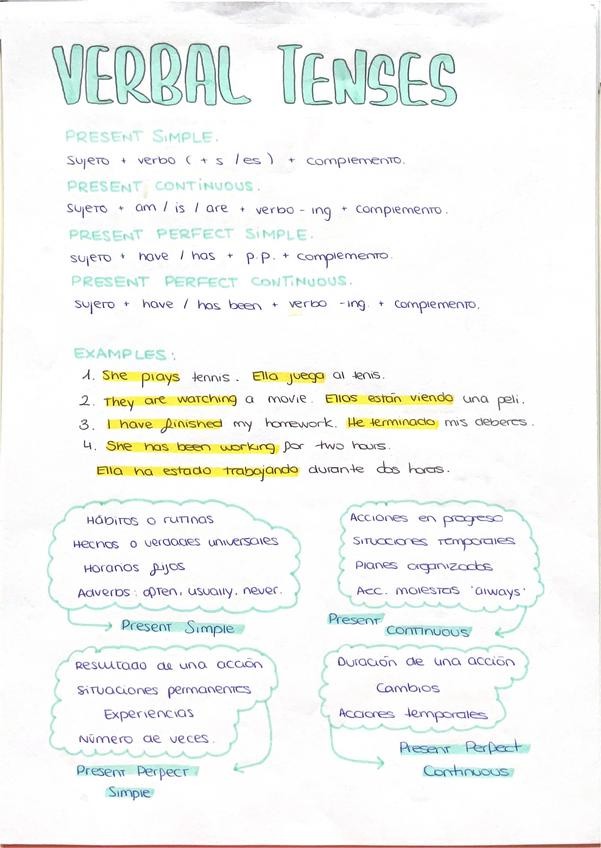 VERBAL TENSES
PRESENT SIMPLE.
Sujeto + verbo ( + s / es ) + complemento.
PRESENT CONTINUOUS.
Sujeto + am / is / are + verbo - ing + complemento.
PRESENT PERFECT SIMPLE.
Sujeto + have / has + p.p. + complemento.
PRESENT PERFECT CONTINUOUS.
Sujeto + have / has been + verbo -ing + complemento.
EXAMPLES:
1. She plays tennis. Ella juega al tenis.
2. They are watching a movie. Ellos están viendo una peli.
3. I have finished my homework. He terminado mis deberes.
4. She has been working for two hours.
Ella ha estado trabajando durante dos horas.
Hábitos o rutinas
Hechos o verdades universales
Horarios fijos
Adverbs: often, usually, never.
Present Simple
Acciones en progreso
Situaciones temporales
Planes organizados
Acc. molestas 'always'
Present
Continuous
Resultado de una acción
Situaciones permanentes
Experiencias
Número de veces.
Present Perfect
Simple
Duración de una acción
Cambios
Acciones temporales
Present Perfect
Continuous